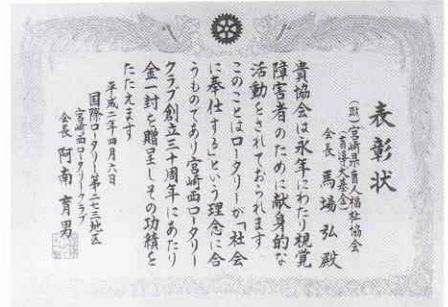 表彰状
(財)宮崎県盲人福祉協会
(盲導犬基金)
会長 馬場弘殿
貴協会は永年にわたり視覚
障害者のために献身的な
活動をされておられます
このことはロータリーが「社会
に奉仕する」という理念に合
うものであり宮崎西ロータリー
クラブ創立三十周年にあたり
金一封を贈呈しその功績を
たたえます
平成二年四月六日
国際ロータリー第二七三地区
宮崎西ロータリークラブ
会長 阿南育男